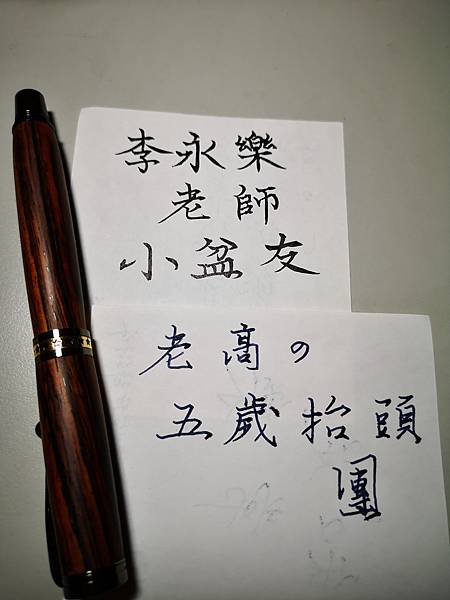 李永樂
老師
小盆友
老高の
五歲抬頭
團